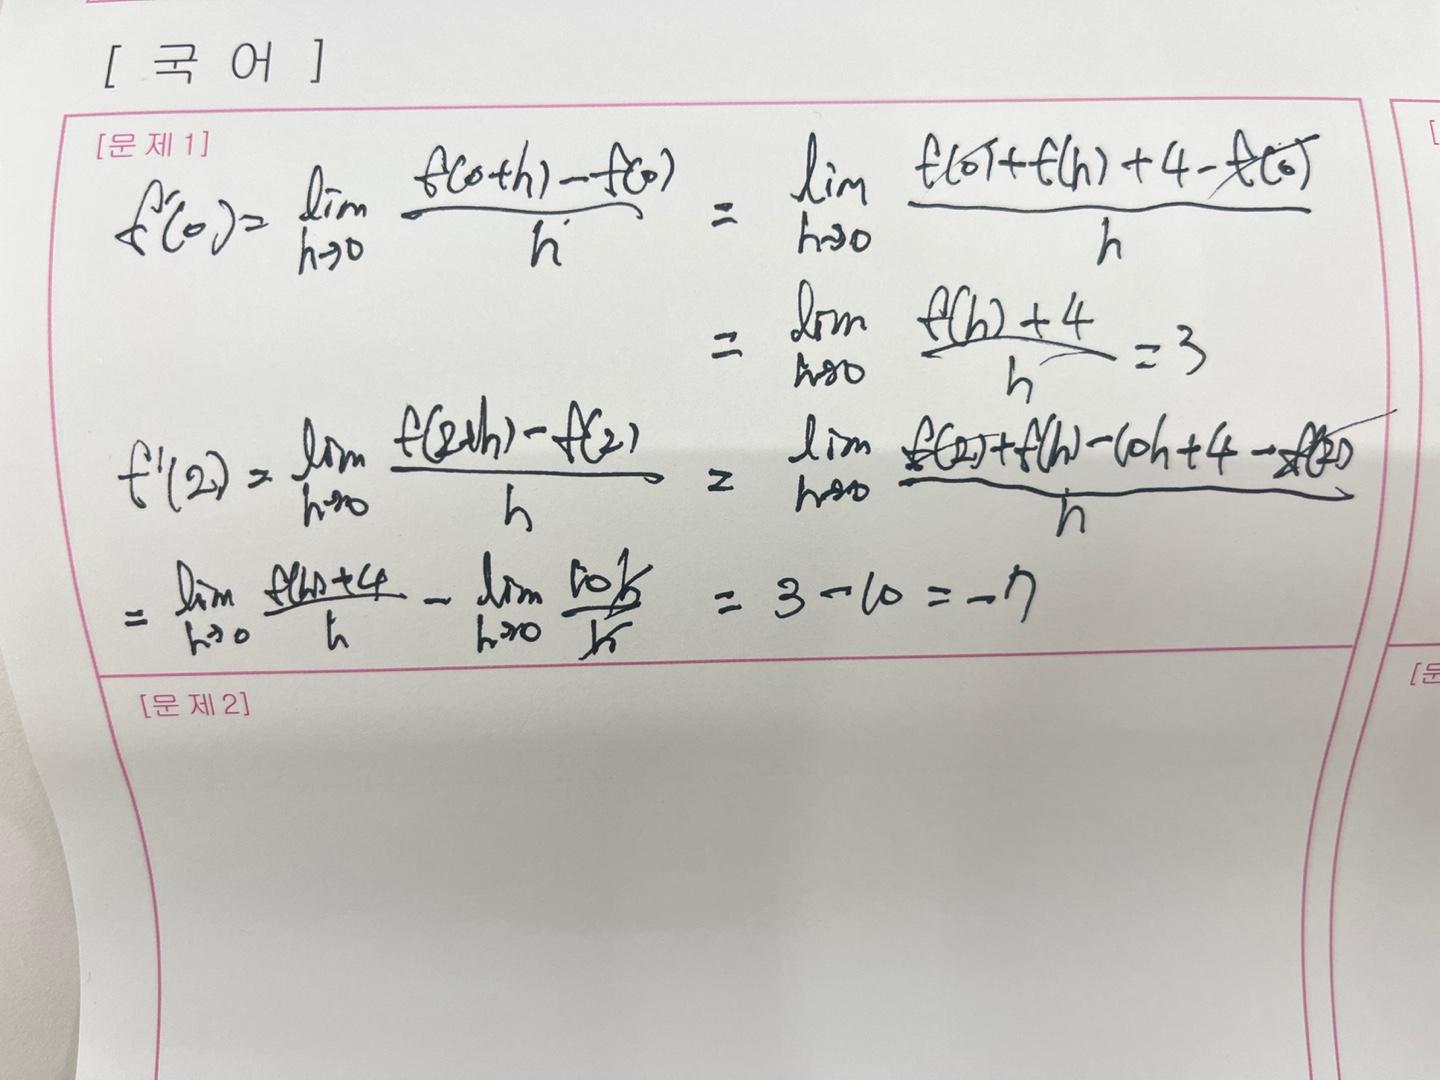 [ 국 어 ]
[문 제 1]
f'(0) = lim h→0 f(0+h)-f(0) / h = lim h→0 f(0)+f(h)+4-f(0) / h
= lim h→0 f(h)+4 / h = 3
f'(2) = lim h→0 f(2+h)-f(2) / h = lim h→0 f(2)+f(h)-10h+4-f(2) / h
= lim h→0 f(h)+4 / h - lim h→0 10h / h = 3-10=-7
[문 제 2]